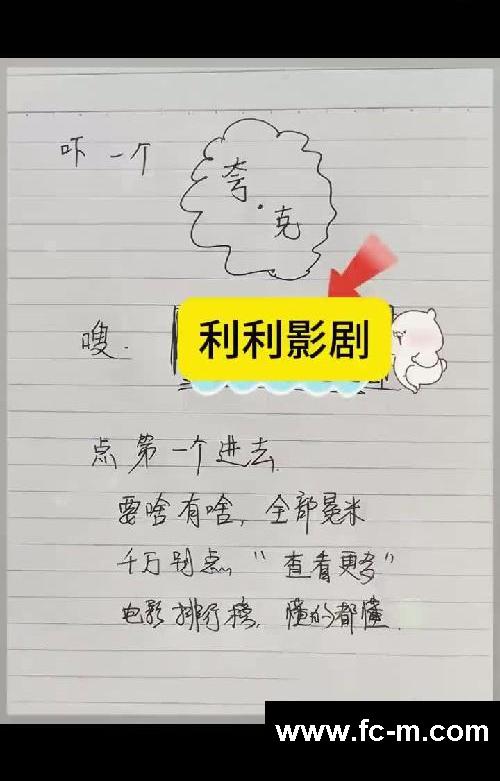 吓一个 夸·克
嗖. 利利影剧
点第一个进去
要啥有啥, 全部冕米
千万别点 "查看更多"
电影排行榜, 懂的都懂.
www.fc-m.com